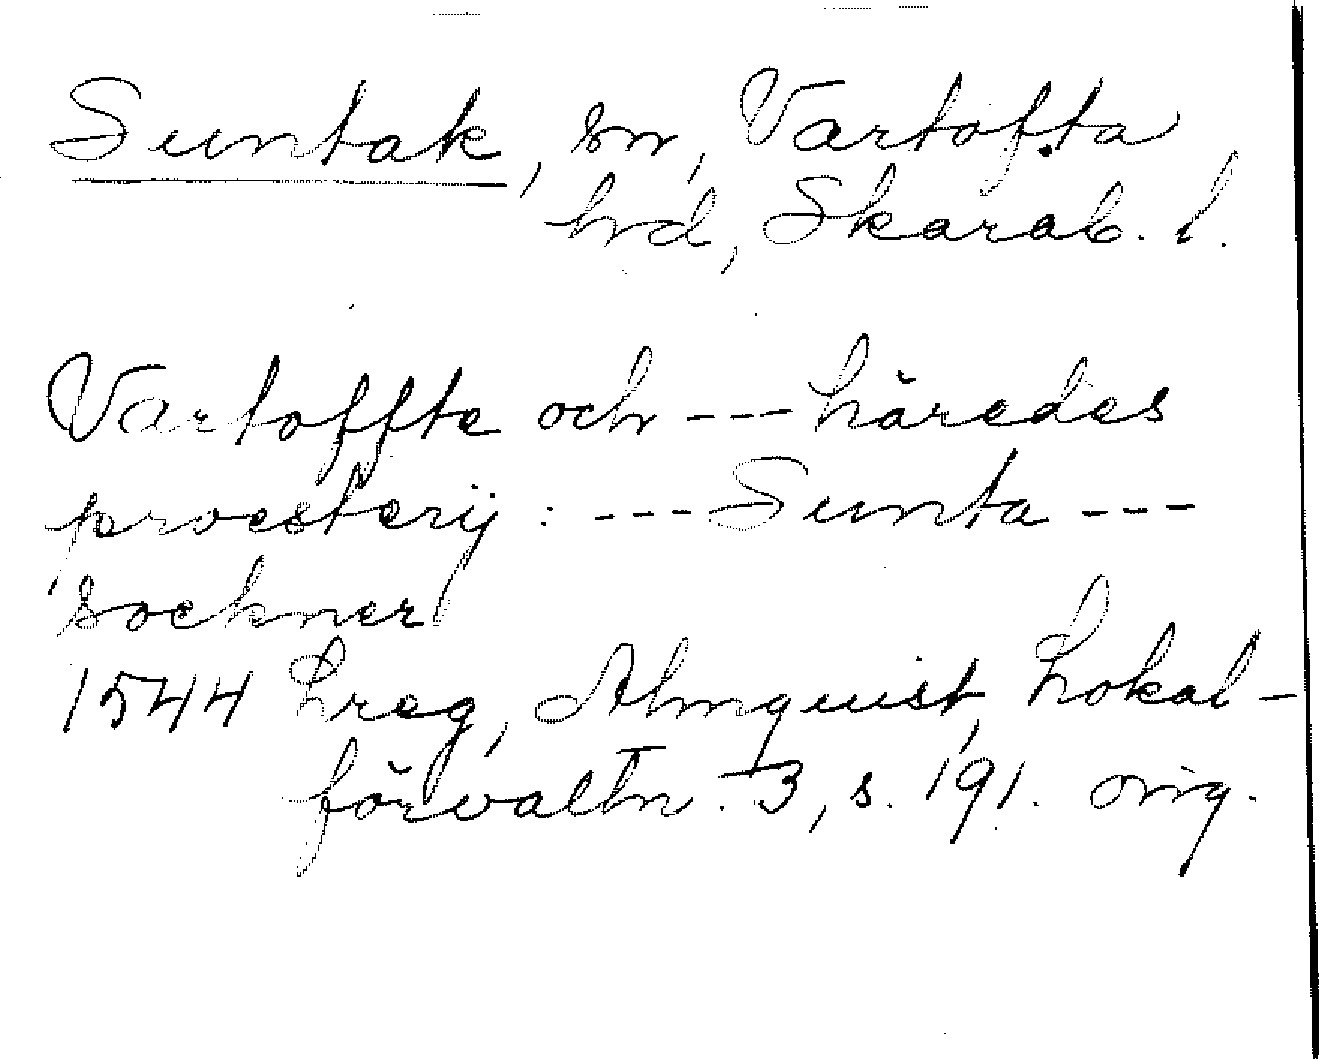 Suntak, sn, Vartofta
hd, Skarab. l.
Vartoffte och --- häredes
proesterij : --- Sunta ---
sockner
1544 Lreg, Almquist, Lokal-
förvaltn. 3, s. 191. orig.